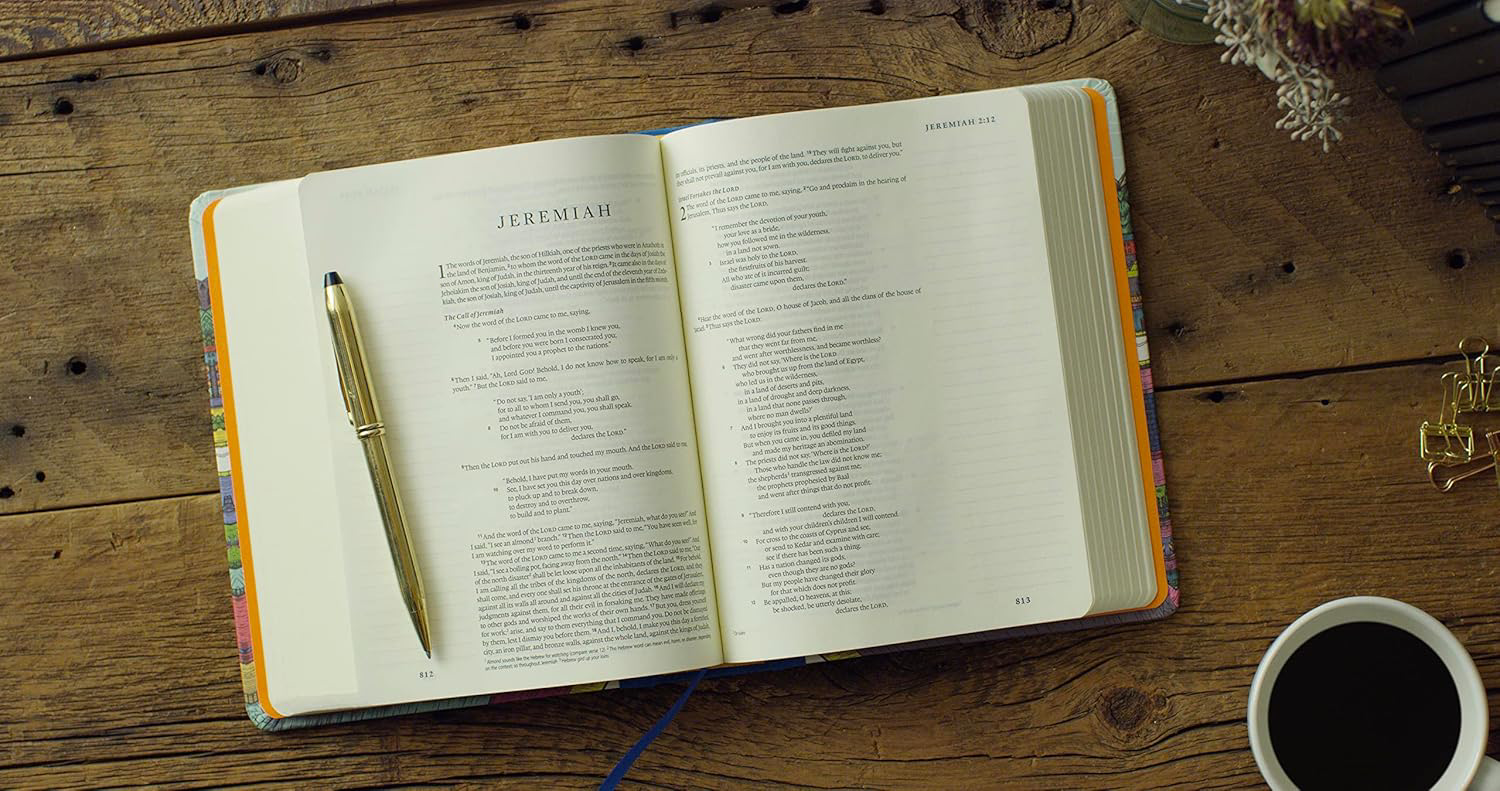 JEREMIAH
1 The words of Jeremiah, the son of Hilkiah, one of the priests who were in Anathoth in
the land of Benjamin, 2 to whom the word of the LORD came in the days of Josiah the
son of Amon, king of Judah, in the thirteenth year of his reign. 3 It came also in the days of
Jehoiakim the son of Josiah, king of Judah, and until the end of the eleventh year of Zede-
kiah, the son of Josiah, king of Judah, until the captivity of Jerusalem in the fifth month.
The Call of Jeremiah
4 Now the word of the LORD came to me, saying,
5 "Before I formed you in the womb I knew you,
and before you were born I consecrated you;
I appointed you a prophet to the nations."
6 Then I said, "Ah, Lord GOD! Behold, I do not know how to speak, for I am only a
youth." 7 But the LORD said to me,
"Do not say, 'I am only a youth';
for to all to whom I send you, you shall go,
and whatever I command you, you shall speak.
8 Do not be afraid of them,
for I am with you to deliver you,
declares the LORD."
9 Then the LORD put out his hand and touched my mouth. And the LORD said to me,
"Behold, I have put my words in your mouth.
10 See, I have set you this day over nations and over kingdoms,
to pluck up and to break down,
to destroy and to overthrow,
to build and to plant."
11 And the word of the LORD came to me, saying, "Jeremiah, what do you see?" And
I said, "I see an almond1 branch." 12 Then the LORD said to me, "You have seen well, for
I am watching over my word to perform it."
13 The word of the LORD came to me a second time, saying, "What do you see?" And
I said, "I see a boiling pot, facing away from the north." 14 Then the LORD said to me, "Out
of the north disaster2 shall be let loose upon all the inhabitants of the land. 15 For behold,
I am calling all the tribes of the kingdoms of the north, declares the LORD, and they
shall come, and every one shall set his throne at the entrance of the gates of Jerusalem,
against all its walls all around and against all the cities of Judah. 16 And I will declare my
judgments against them, for all their evil in forsaking me. They have made offerings
to other gods and worshiped the works of their own hands. 17 But you, dress yourself
for work;3 arise, and say to them everything that I command you. Do not be dismayed
by them, lest I dismay you before them. 18 And I, behold, I make you this day a fortified
city, an iron pillar, and bronze walls, against the whole land, against the kings of Judah,
1 Almond sounds like the Hebrew for watching (compare verse 12) 2 The Hebrew word can mean evil, harm, or disaster, depending
on the context; so throughout Jeremiah 3 Hebrew gird up your loins
812
JEREMIAH 2:12
its officials, its priests, and the people of the land. 19 They will fight against you, but
they shall not prevail against you, for I am with you, declares the LORD, to deliver you."
Israel Forsakes the LORD
2 The word of the LORD came to me, saying, 2 "Go and proclaim in the hearing of
Jerusalem, Thus says the LORD,
"I remember the devotion of your youth,
your love as a bride,
how you followed me in the wilderness,
in a land not sown.
3 Israel was holy to the LORD,
the firstfruits of his harvest.
All who ate of it incurred guilt;
disaster came upon them,
declares the LORD."
4 Hear the word of the LORD, O house of Jacob, and all the clans of the house of
Israel. 5 Thus says the LORD:
"What wrong did your fathers find in me
that they went far from me,
and went after worthlessness, and became worthless?
6 They did not say, 'Where is the LORD
who brought us up from the land of Egypt,
who led us in the wilderness,
in a land of deserts and pits,
in a land of drought and deep darkness,
in a land that none passes through,
where no man dwells?'
7 And I brought you into a plentiful land
to enjoy its fruits and its good things.
But when you came in, you defiled my land
and made my heritage an abomination.
8 The priests did not say, 'Where is the LORD?'
Those who handle the law did not know me;
the shepherds1 transgressed against me;
the prophets prophesied by Baal
and went after things that do not profit.
9 "Therefore I still contend with you,
declares the LORD,
and with your children's children I will contend.
10 For cross to the coasts of Cyprus and see,
or send to Kedar and examine with care;
see if there has been such a thing.
11 Has a nation changed its gods,
even though they are no gods?
But my people have changed their glory
for that which does not profit.
12 Be appalled, O heavens, at this;
be shocked, be utterly desolate,
declares the LORD,
813